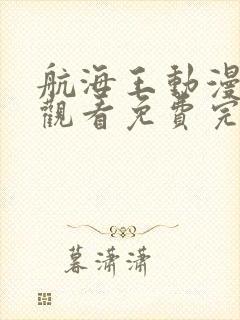 航海王動漫
觀看免費完
暮瀟瀟